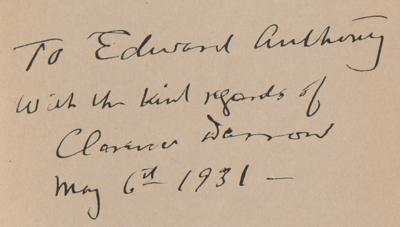 To Edward Anthony
With the kind regards of
Clarence Darrow
May 6th 1931 —